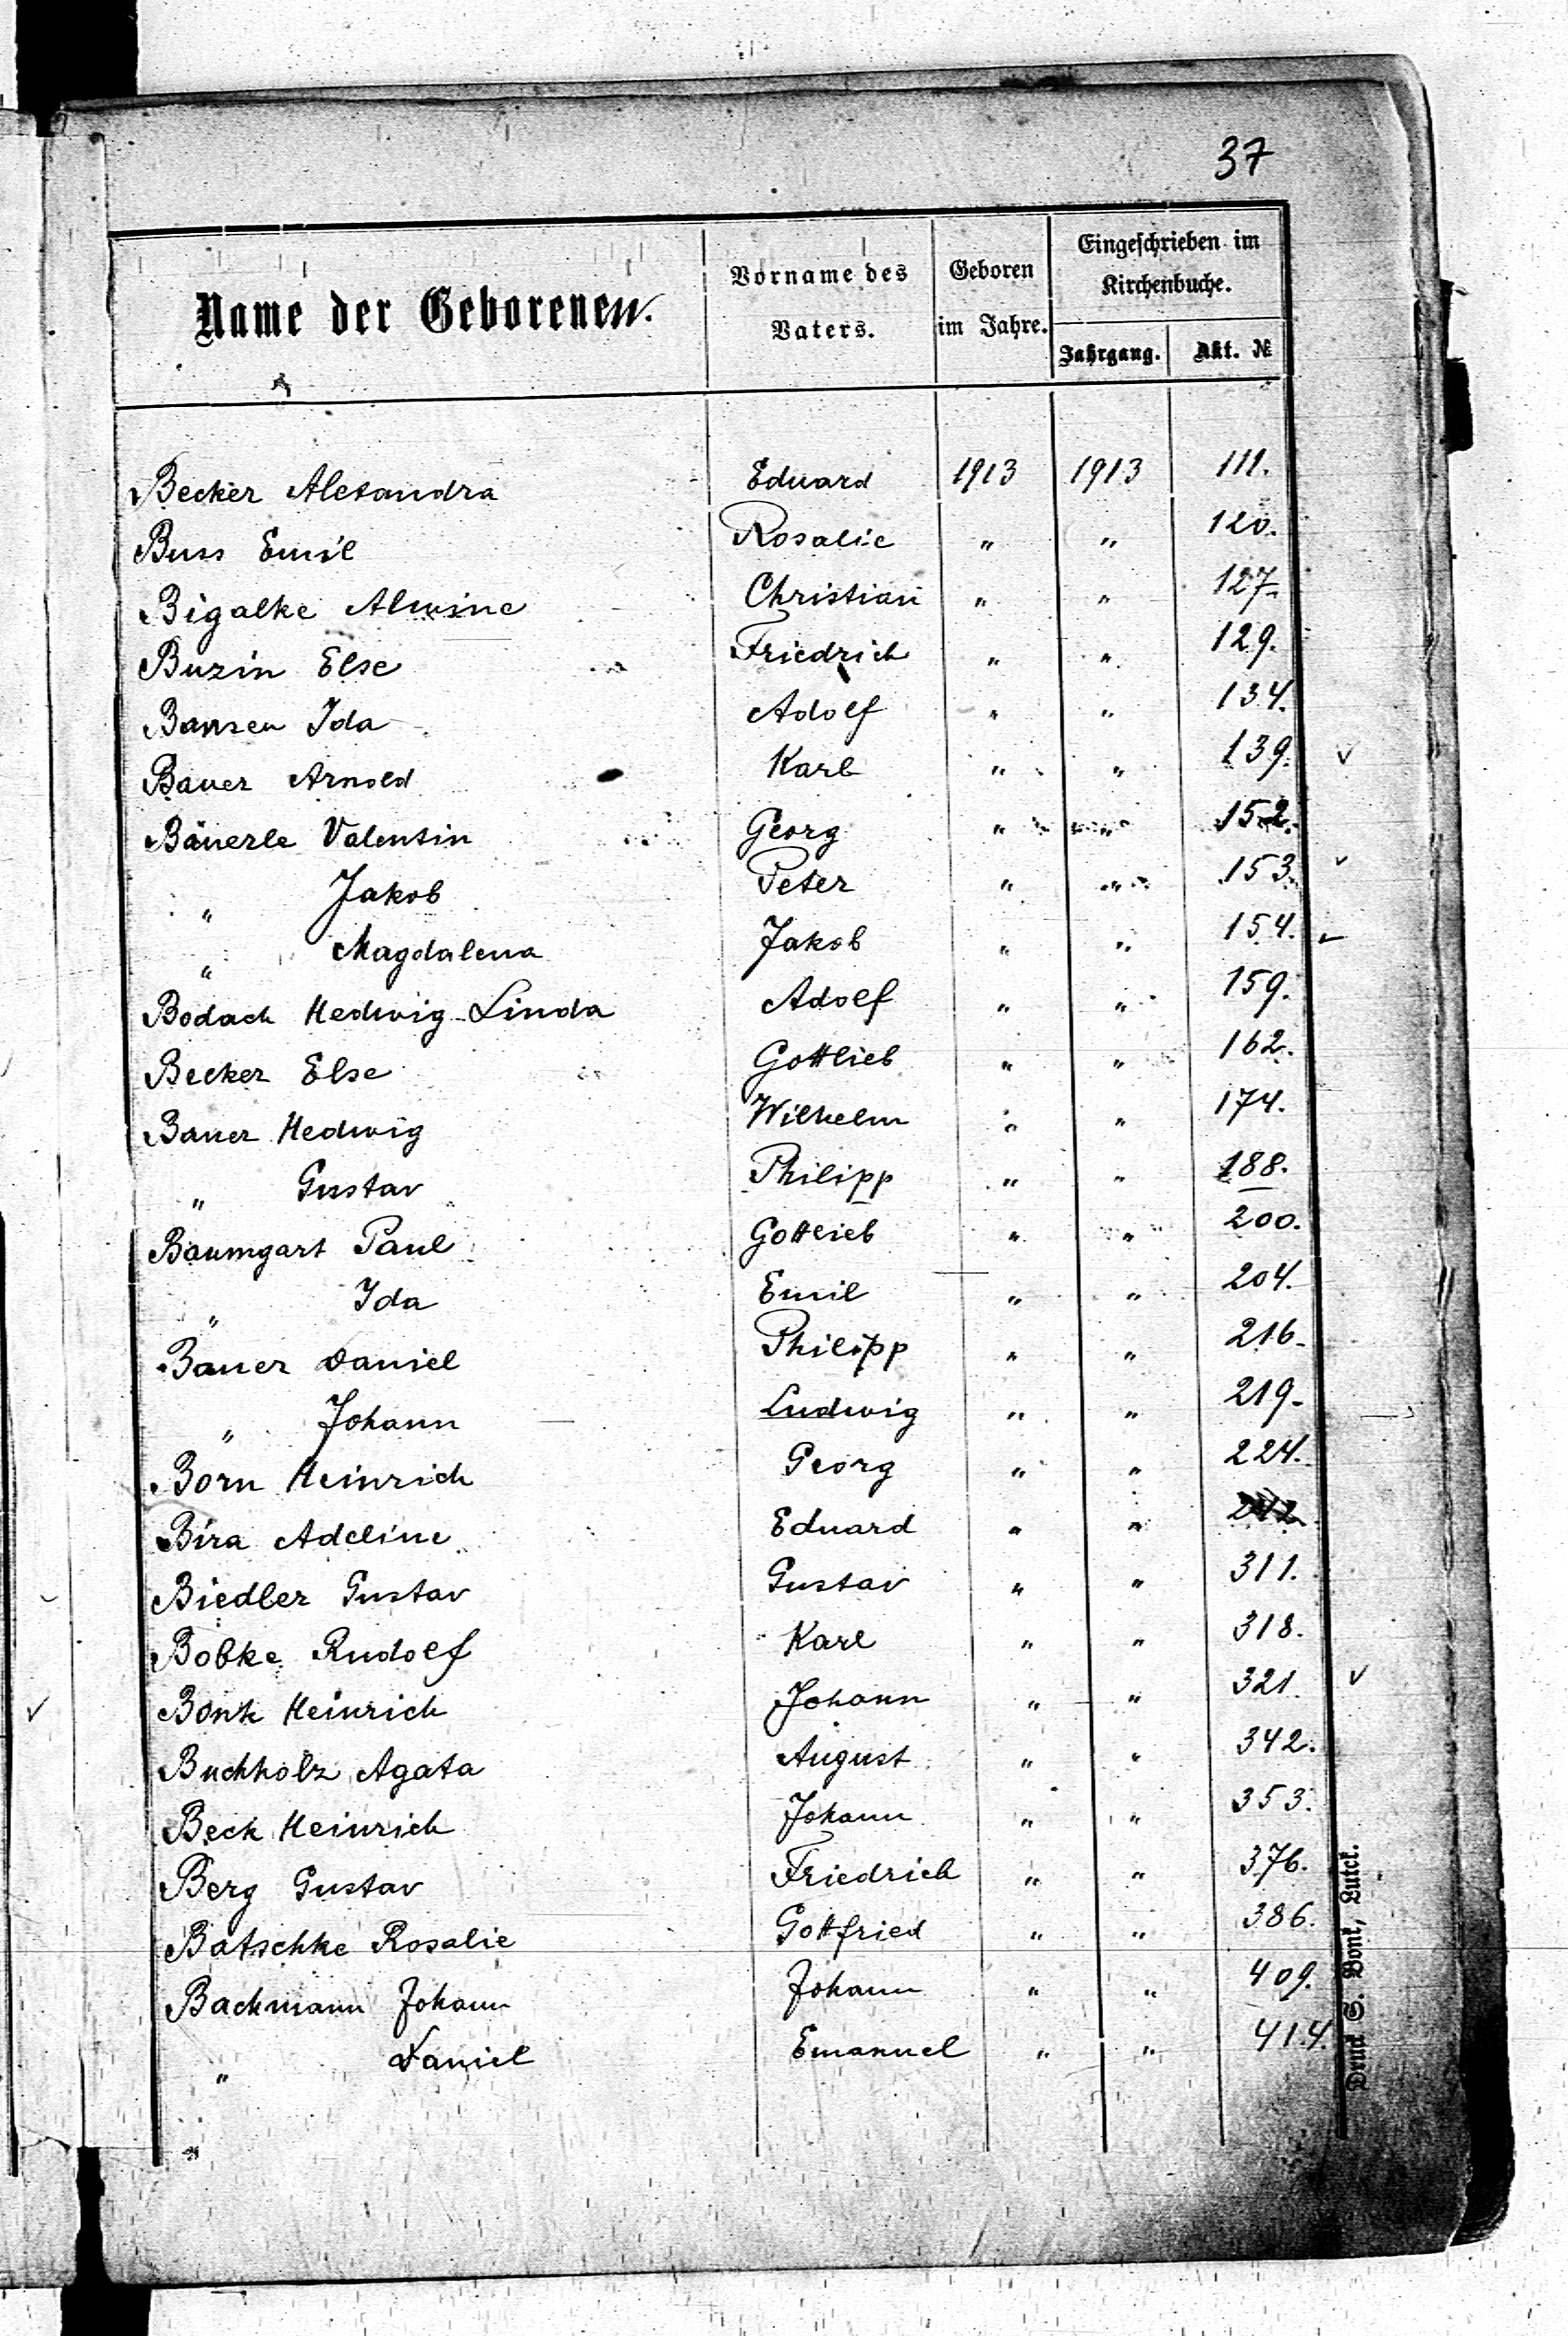 37
Name der Geborenen.
Vorname des Vaters.
Geboren im Jahre.
Eingeschrieben im Kirchenbuche.
Jahrgang.
Akt. №
Becker Alexandra Eduard 1913 1913 111.
Buss Emil Rosalie " " 120.
Bigalke Alwine Christian " " 127.
Buzin Else Friedrich " " 129.
Bansen Ida Adolf " " 134.
Bauer Arnold Karl " " 139. ✓
Bäuerle Valentin Georg " " 152.
" Jakob Peter " " 153. ✓
" Magdalena Jakob " " 154. ✓
Bodach Hedwig Linda Adolf " " 159.
Becker Else Gottlieb " " 162.
Bauer Hedwig Wilhelm " " 174.
" Gustav Philipp " " 188.
Baumgart Paul Gottlieb " " 200.
" Ida Emil " " 204.
Bauer Daniel Philipp " " 216.
" Johann Ludwig " " 219.
Born Heinrich Georg " " 224.
Bira Adeline Eduard " "
Biedler Gustav Gustav " " 311.
Bobke Rudolf Karl " " 318.
Bonk Heinrich Johann " " 321. ✓
Buchholz Agata August " " 342.
Beck Heinrich Johann " " 353.
Berg Gustav Friedrich " " 376.
Batschke Rosalie Gottfried " " 386.
Bachmann Johann Johann " " 409.
" Daniel Emanuel " " 414.
Druck S. Bonk, Luzk.